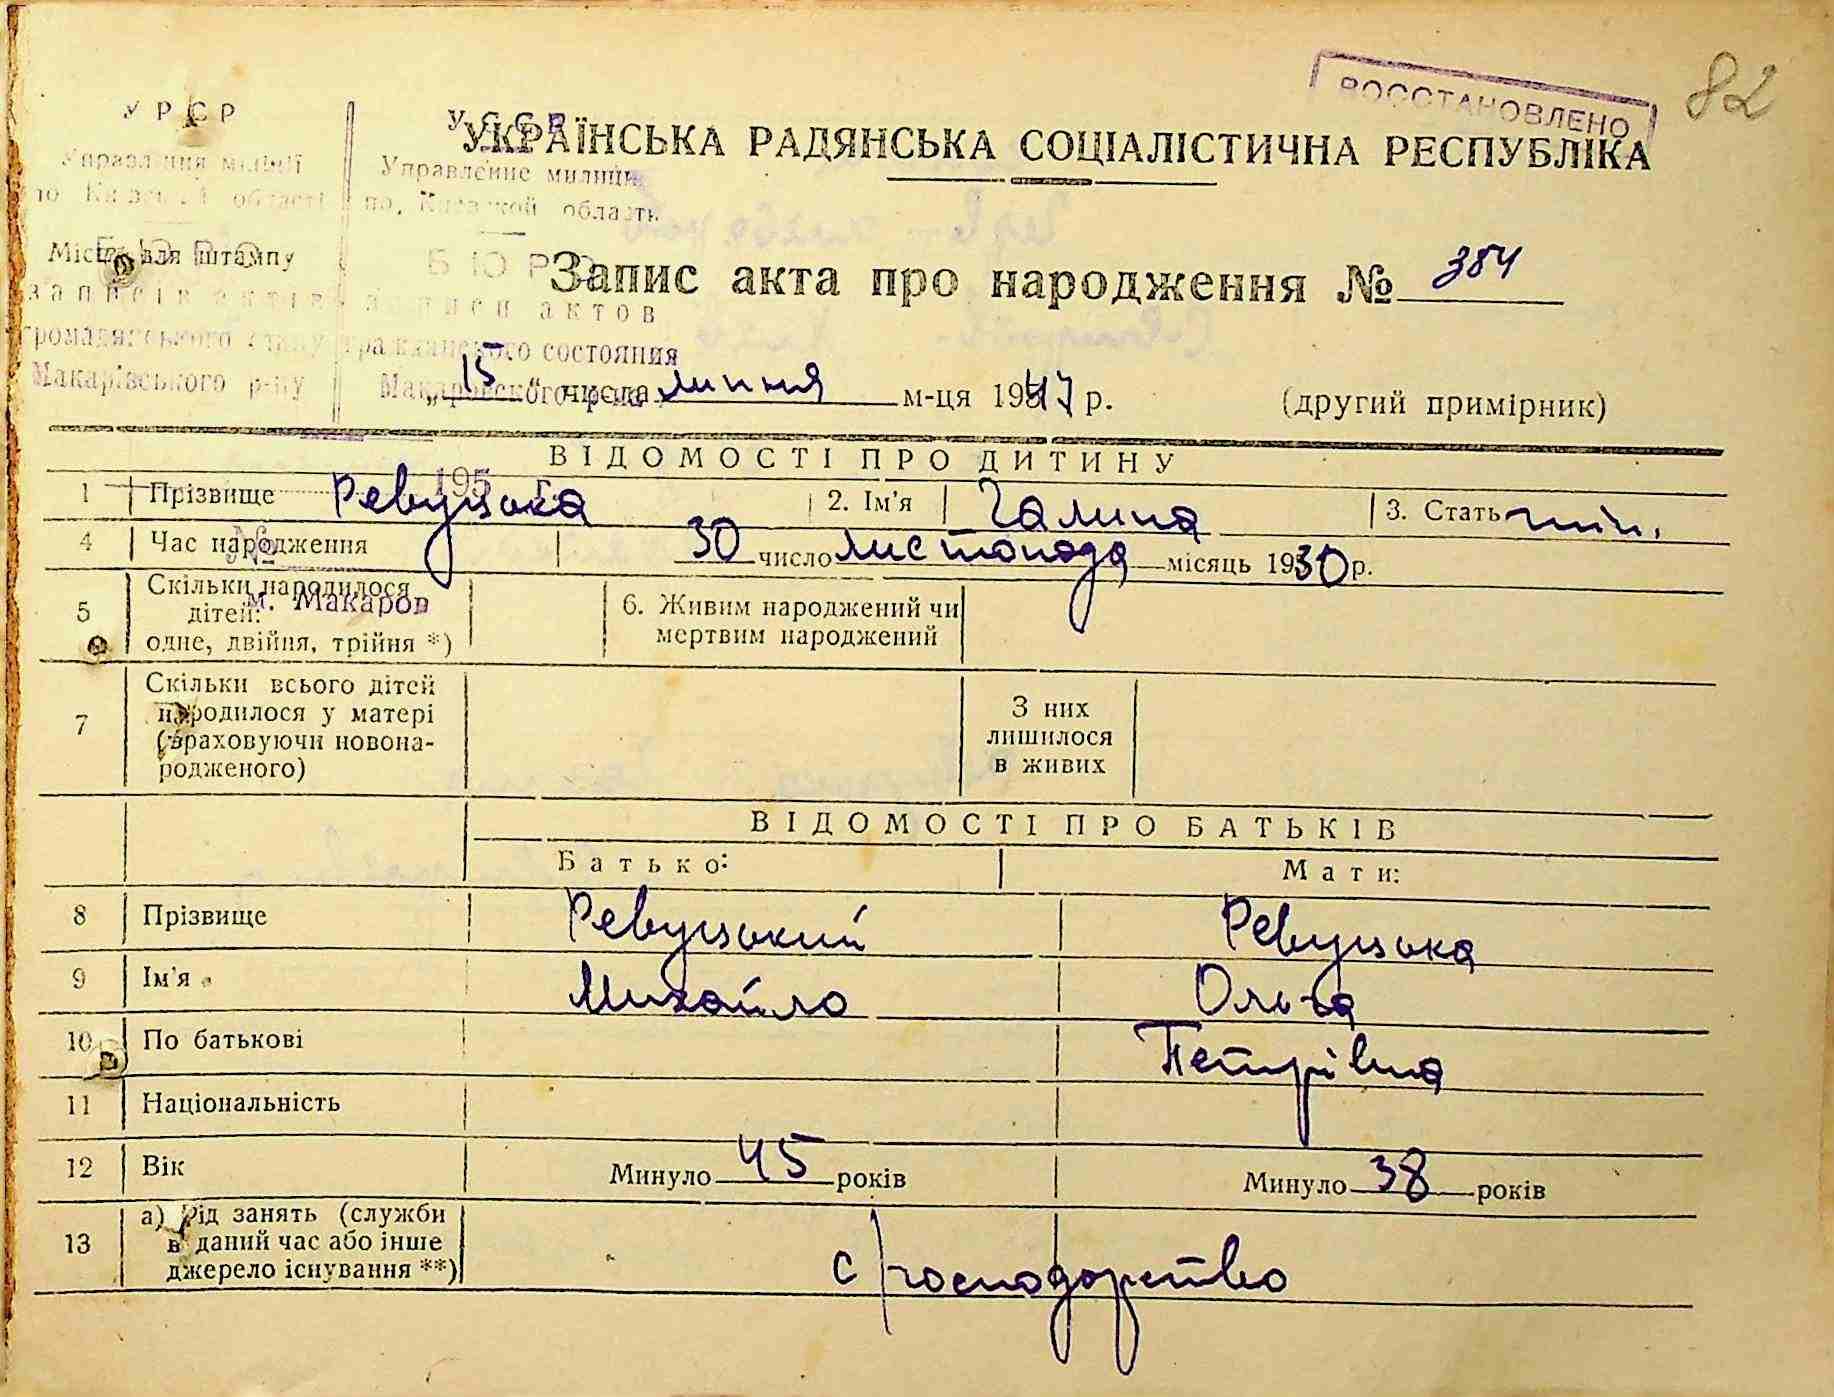 82
ВОССТАНОВЛЕНО
УРСР
Управління міліції
по Київській області
БЮРО
записів актів
громадянського стану
Макарівського р-ну
УССР
Управление милиции
по Киевской области
БЮРО
записи актов
гражданского состояния
Макаровского р-на
195 г.
№
м. Макаров
Місце для штампу
УКРАЇНСЬКА РАДЯНСЬКА СОЦІАЛІСТИЧНА РЕСПУБЛІКА
Запис акта про народження № 384
„15" числа липня м-ця 1947 р. (другий примірник)
ВІДОМОСТІ ПРО ДИТИНУ
1 Прізвище Ревуцька 2. Ім'я Галина 3. Стать жін.
4 Час народження 30 число листопада місяць 1930 р.
5 Скільки народилося
дітей:
одне, двійня, трійня *)
6. Живим народжений чи
мертвим народжений
7 Скільки всього дітей
народилося у матері
(враховуючи новона-
родженого)
З них
лишилося
в живих
ВІДОМОСТІ ПРО БАТЬКІВ
Батько: Мати:
8 Прізвище Ревуцький Ревуцька
9 Ім'я Михайло Ольга
10 По батькові Петрівна
11 Національність
12 Вік Минуло 45 років Минуло 38 років
13 а) Рід занять (служби
в даний час або інше
джерело існування **)
с/господарство